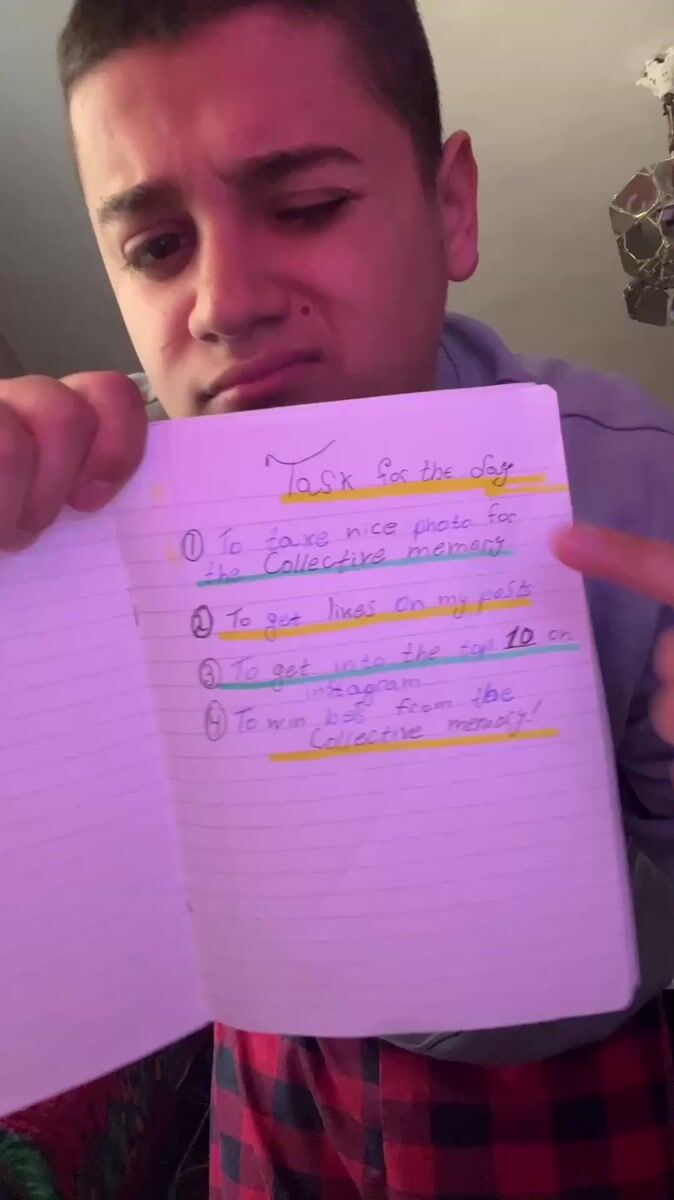 Task for the day
① To take nice photo for
the Collective memory
② To get likes on my posts
③ To get into the top 10 on
instagram
④ To win bet from the
Collective memory!